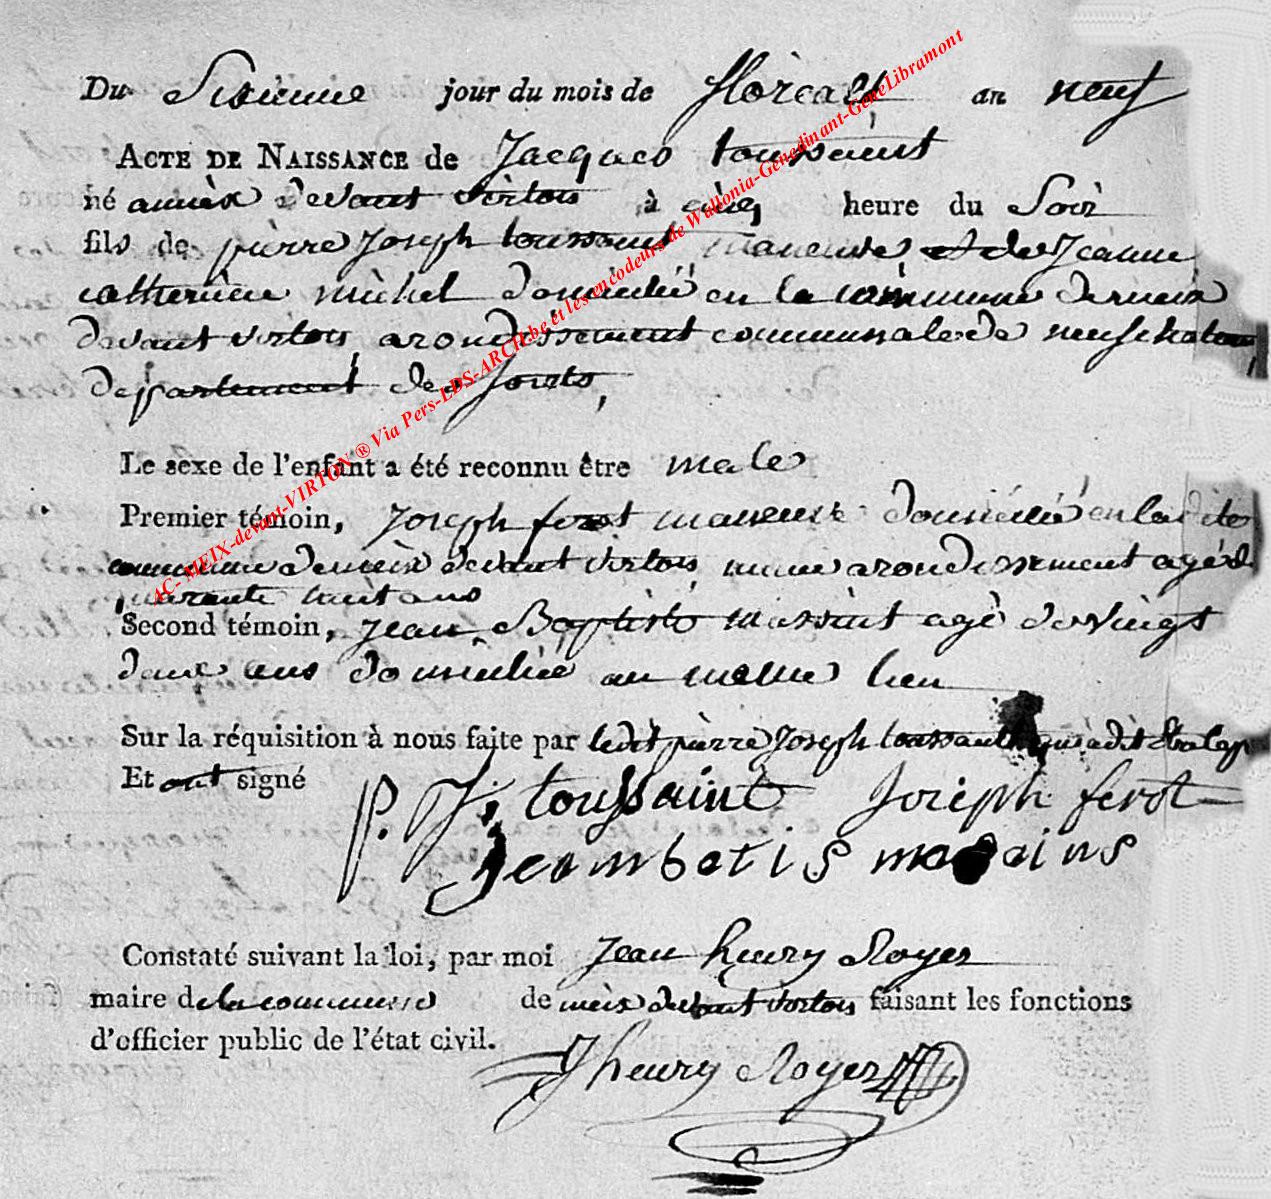 Du Sixieme jour du mois de floreal an neuf
ACTE DE NAISSANCE de Jacques toussaint
né a meix devant virton à cinq heure du Soir
fils de pierre Joseph toussaint maneuvre et de Jeanne
catherine michel domicilié en la commune de meix
devant virton arondissement communale de neufchateau
departement des forets,
Le sexe de l'enfant a été reconnu être male
Premier témoin, Joseph ferot maneuvre domicilié en la dite
commune de meix devant virton, meme arondissement agé de
quarante huit ans
Second témoin, Jean Baptiste massint agé de vingt
deux ans domicilié au meme lieu
Sur la réquisition à nous faite par ledit pierre Joseph toussaint
Et ont signé
P. J. toussaint Joseph ferot
Jeambatis
Constaté suivant la loi, par moi Jean henry Royer
maire de la commune de meix devant virton faisant les fonctions
d'officier public de l'état civil.
J henry Royer
AC- MEIX-devant-VIRTON ® Via Pers-LDS-ARCH.be et les encodeurs de Wallonia-Genedinant-GeneLibramont